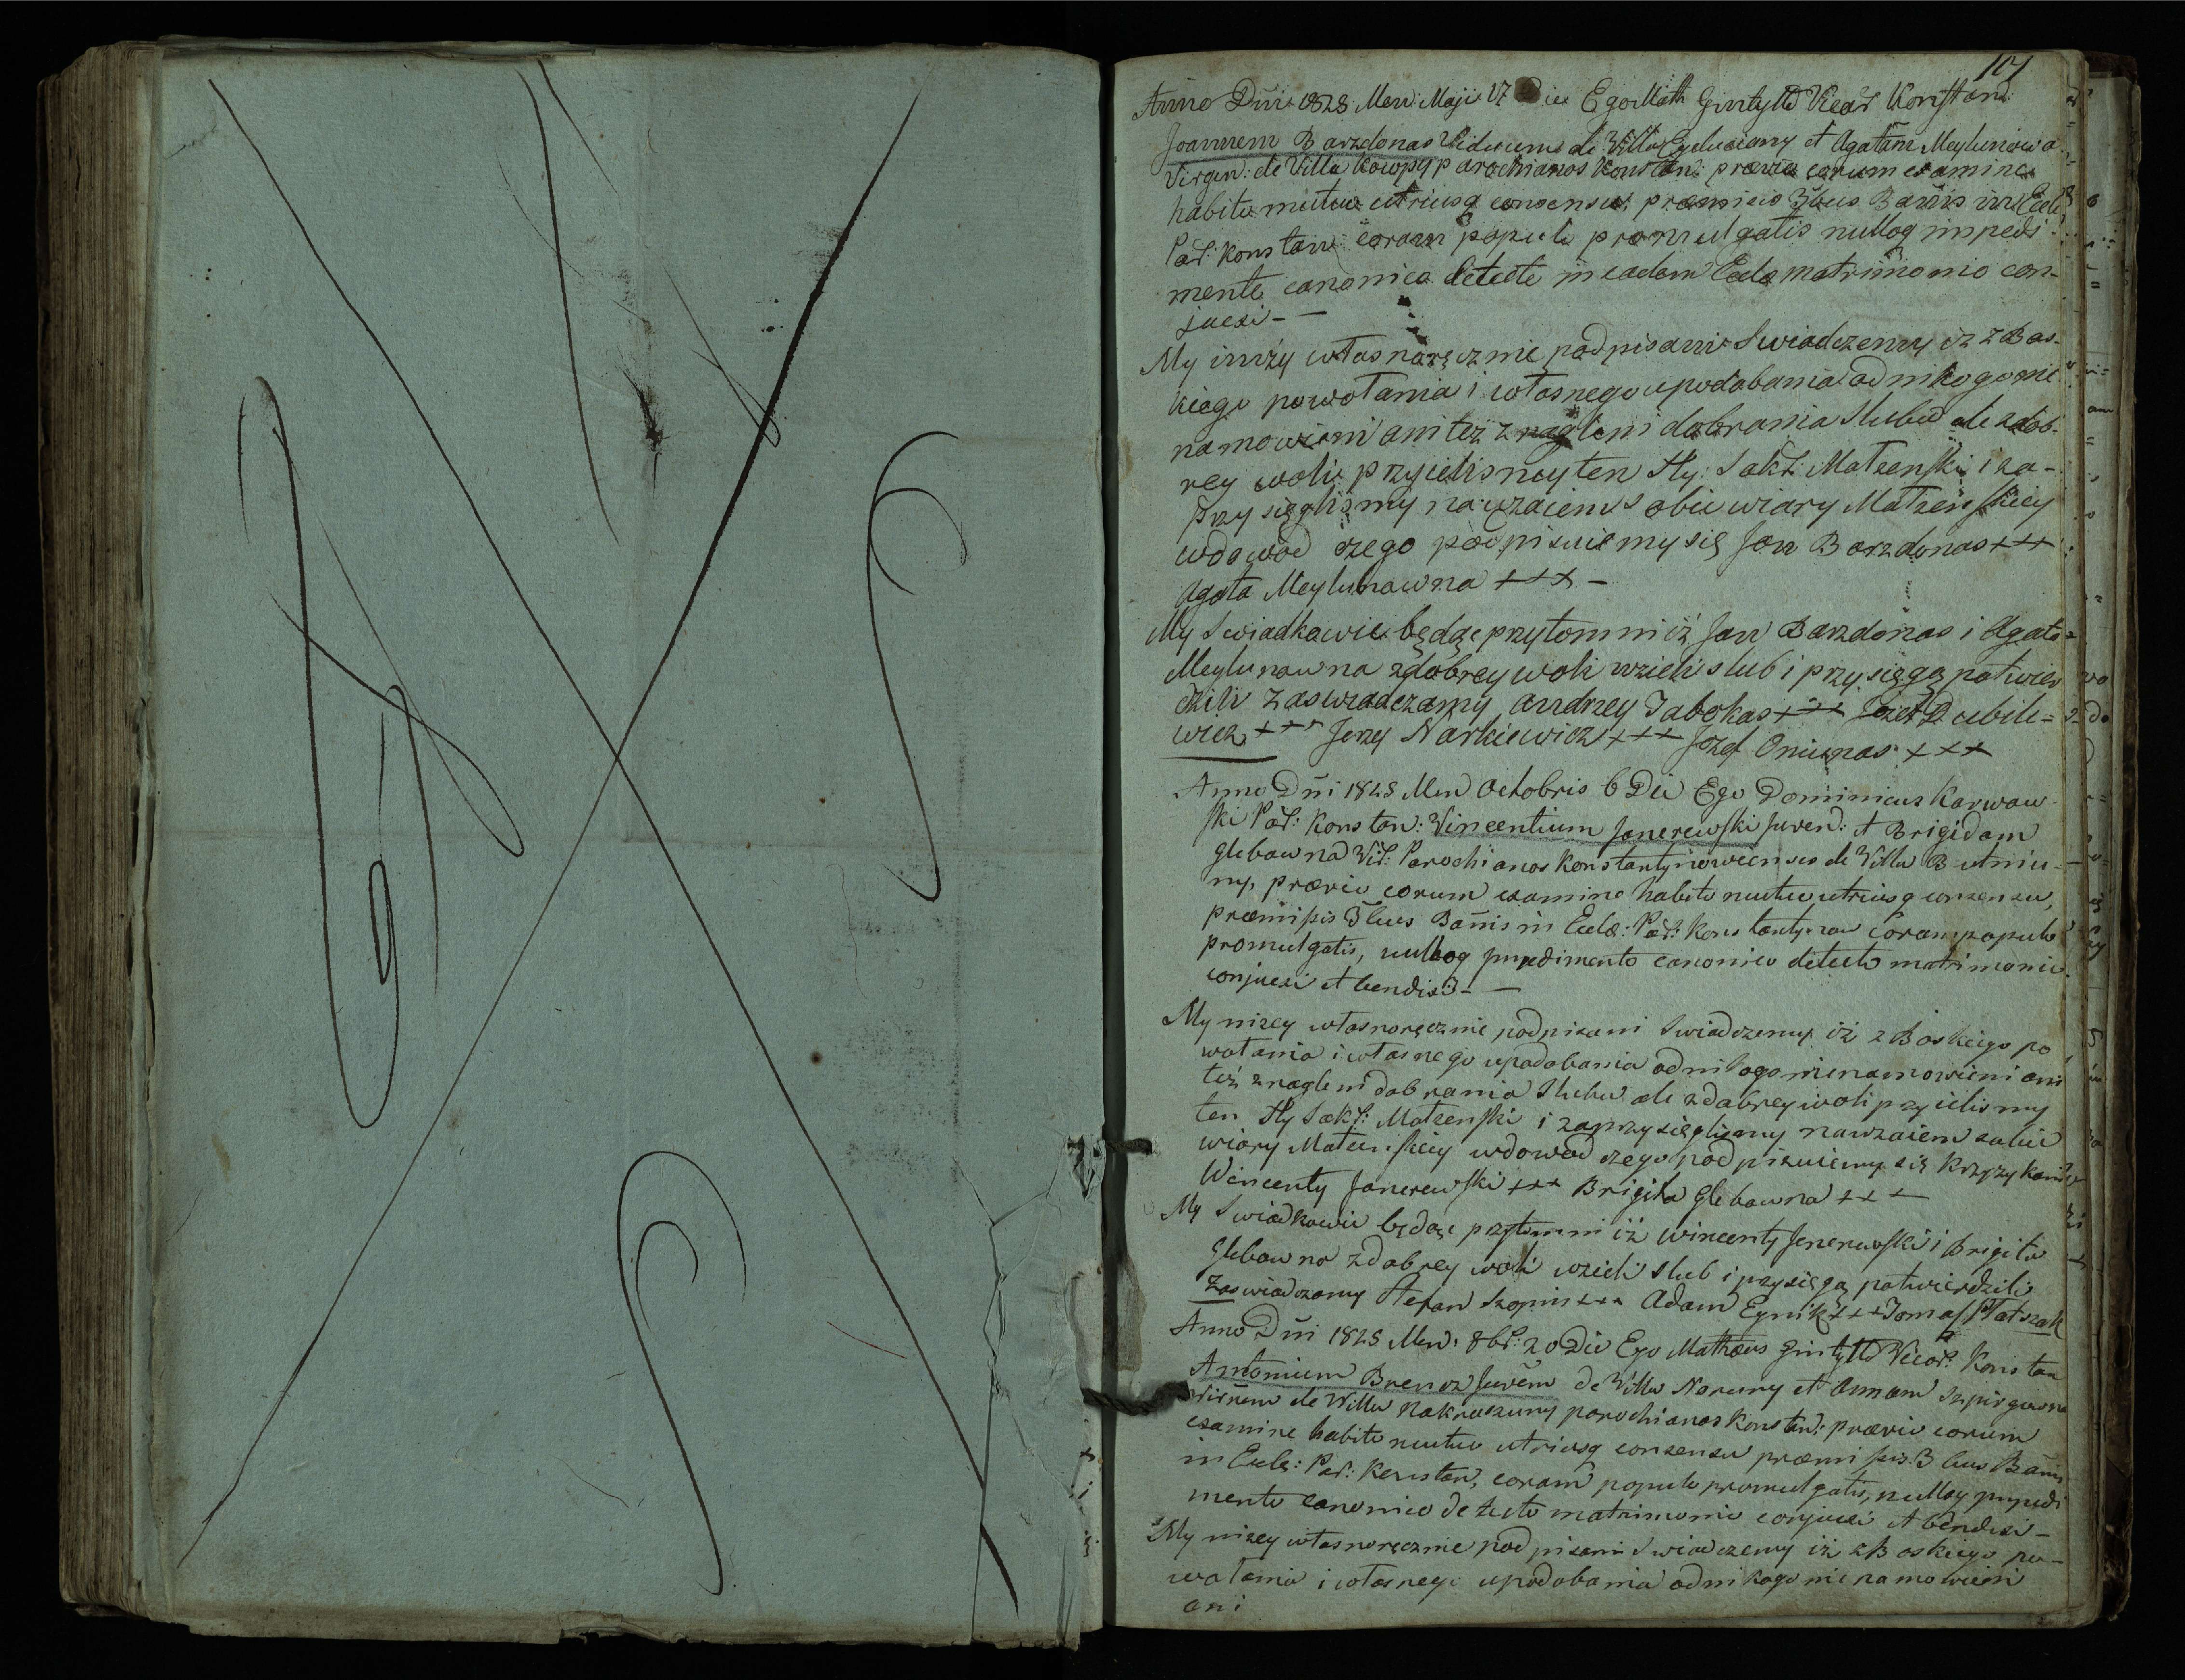 107
Anno Dñi 1828 Men: Maji 17 Die Ego Math Gintyłło Vicar Konstan:
Joannem Barzdonas Viduum de Villa et Agatam Meylunowa
Virgin: de Villa Kowpy parochianos Konstan: prævio eorum examine
habito mutuo utriusq consensu, præmissis 3bus Bañis in Eccl:
Par: Konstan: coram populo promulgatis nulloq impedi-
mento canonico detecto in eadem Eccla matrimonio con-
juxi - -
My niżey własnoręcznie podpisani Swiadczemy iż z Bos-
kiego powołania i własnego upodobania od nikogo nie
namowieni ani też znagleni dobrania Slubu ale z dob-
rey woli przyielismy ten Sty: Sakr: Małzenski i za-
przysięglismy nawzaiem sobie wiary Małzenskiey
w dowod czego podpisuiemy się Jan Barzdonas +++
Agata Meylunowna +++ -
My Swiadkowie będąc przytomni iż Jan Barzdonas i Agata
Meylunowna z dobrey woli wzieli slub i przysięgą potwier
dzili zaswiadczamy Andrzey Jabokas +++ Jozef Dubile=
wicz +++ Jerzy Narkiewicz +++ Jozef Oniunas +++
Anno Dñi 1828 Men Octobris 6 Die Ego Dominicus Karwow
ski Par: Konstan: Vincentium Janerewski Juven: et Brigidam
Glebowna Vir: Parochianos Konstantynowienses de Villa Butniu-
ny, prævio eorum examine habito mutuo utriusq consensu,
præmissis 3bus Bañis in Eccla: Par: Konstantynow coram populo
promulgatis, nulloq impedimento canonico detecto matrimonio
conjuxi et bendixi - -
My niżey własnoręcznie podpisani Swiadczemy iż z Boskiego po
wołania i własnego upodobania od nikogo nienamowieni ani
też znagleni dobrania Slubu ale z dobrey woli przyielismy
ten Sty Sakr: Małzenski i zaprzysięglismy nawzaiem sobie
wiary Małzenskiey w dowod czego podpisuiemy się Krzyzykami
Wincenty Janerewski +++ Brigita Glebowna +++
My Swiadkowie będąc przytomni iż Wincenty Janerewski i Brigita
Glebowna z dobrey woli wzieli slub i przysięgą potwierdzili
Zaswiadczamy Stefan Szopis +++ Adam Eynik +++ Tomasz
Anno Dñi 1828 Men: 8br: 20 Die Ego Mathæus Gintyłło Vicar: Konstan
Antonium Brencz Juvem de Villa Naruny et Annam Szpirgowna
Virinem de Villa Nakruszuny parochianos Konstan: prævio eorum
examine habito mutuo utriusq consensu præmissis 3bus Bañis
in Eccle: Par: Konstan, coram populo promulgatis, nulloq impedi
mento canonico detecto matrimonio conjuxi et bendixi -
My niżey własnoręcznie podpisani Swiadczemy iż z Boskiego po-
wołania i własnego upodobania od nikogo nienamowieni
ani